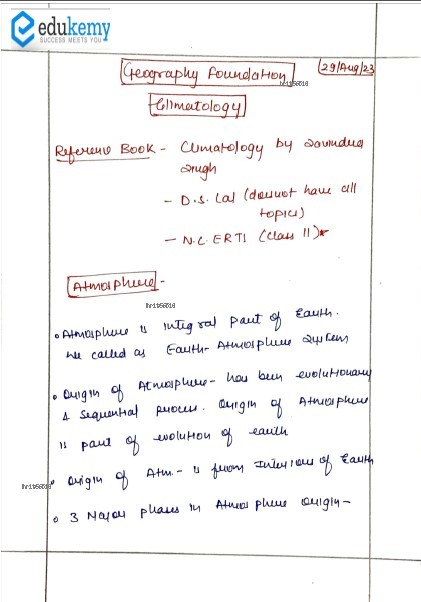 edukemy
SUCCESS MEETS YOU
Geography Foundation
29/Aug/23
Climatology
Reference Book - Climatology by
singh
- D.S. Lal (doesnot have all
topics)
- N.C.ERTs (Class 11)*
Atmosphere -
• Atmosphere is integral part of Earth.
we called as Earth-Atmosphere system
• Origin of Atmosphere - has been evolutionary
& sequential process. Origin of Atmosphere
is part of evolution of earth
• Origin of Atm. - is from Interiors of Earth
• 3 Major phases in Atmosphere Origin -